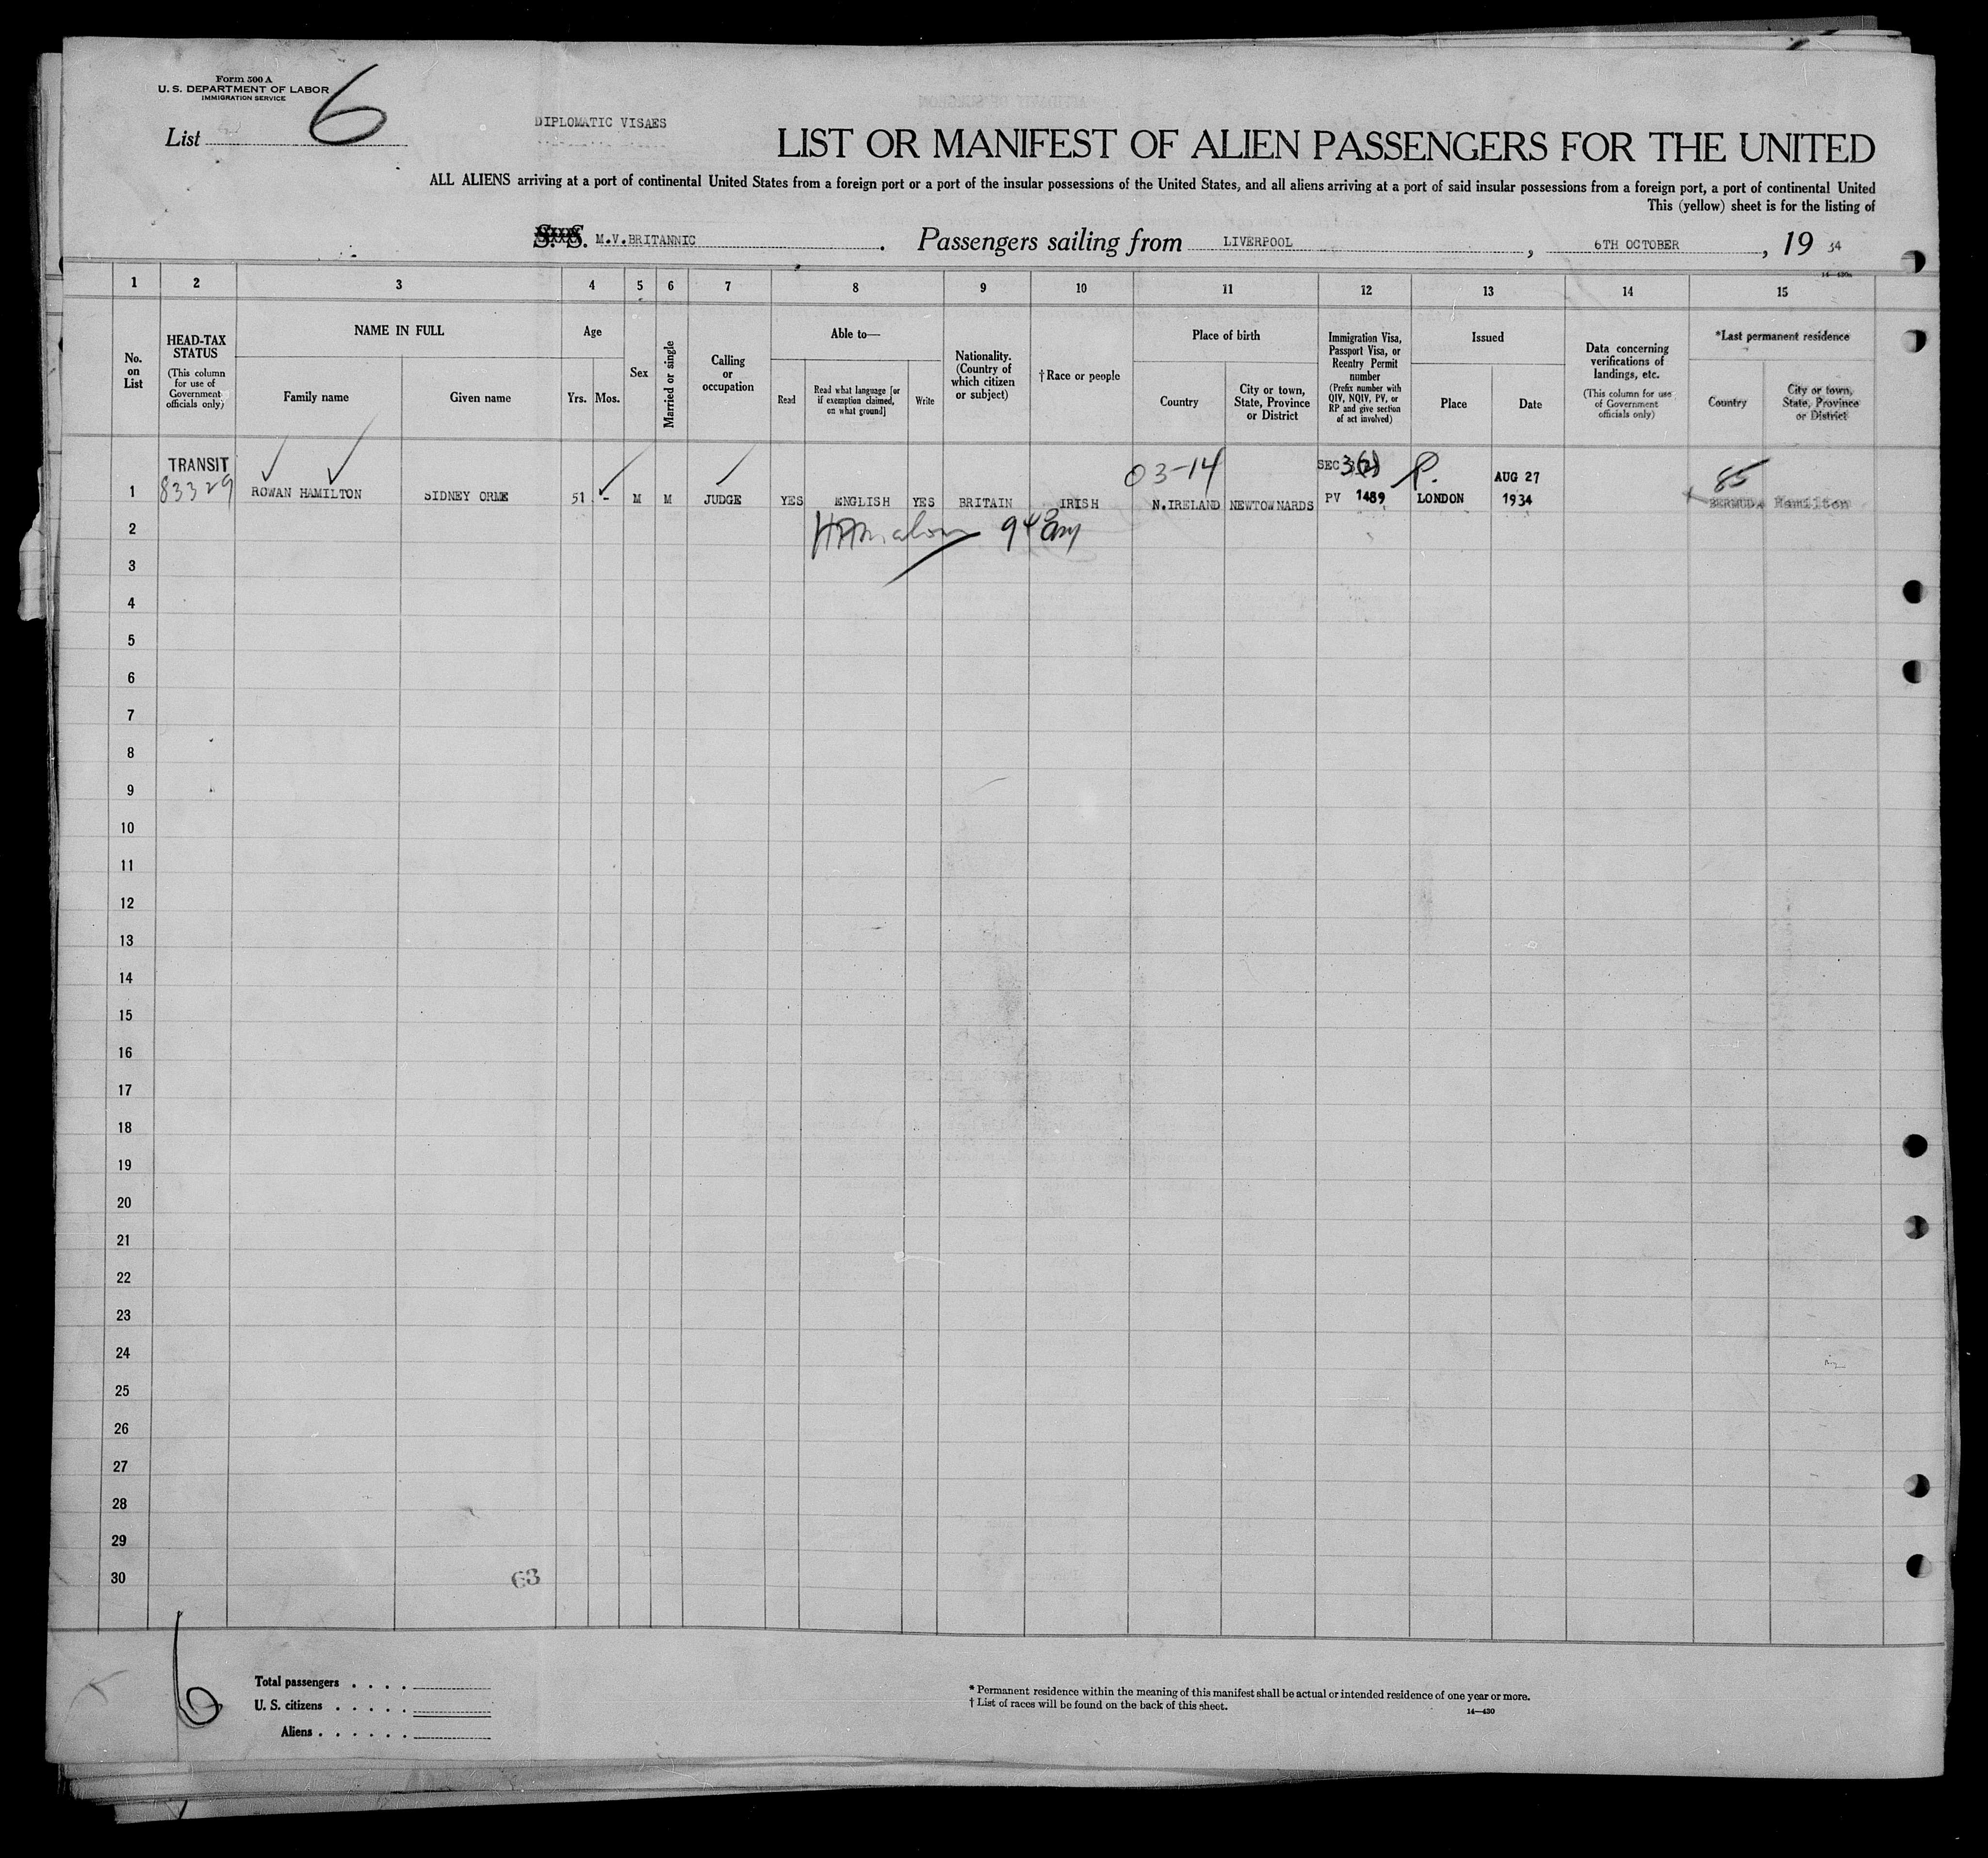 Form 500 A
U. S. DEPARTMENT OF LABOR
IMMIGRATION SERVICE
List 6
DIPLOMATIC VISAES
LIST OR MANIFEST OF ALIEN PASSENGERS FOR THE UNITED
ALL ALIENS arriving at a port of continental United States from a foreign port or a port of the insular possessions of the United States, and all aliens arriving at a port of said insular possessions from a foreign port, a port of continental United
This (yellow) sheet is for the listing of
S. S. M.V.BRITANNIC. Passengers sailing from LIVERPOOL, 6TH OCTOBER, 19 34
14—430a
1 2 3 4 5 6 7 8 9 10 11 12 13 14 15
No. on List
HEAD-TAX STATUS
(This column for use of Government officials only)
NAME IN FULL
Family name
Given name
Age
Yrs.
Mos.
Sex
Married or single
Calling or occupation
Able to—
Read
Read what language [or if exemption claimed, on what ground]
Write
Nationality. (Country of which citizen or subject)
†Race or people
Place of birth
Country
City or town, State, Province or District
Immigration Visa, Passport Visa, or Reentry Permit number
(Prefix number with QIV, NQIV, PV, or RP and give section of act involved)
Issued
Place
Date
Data concerning verifications of landings, etc.
(This column for use of Government officials only)
*Last permanent residence
Country
City or town, State, Province or District
TRANSIT 03-14 SEC 3(2) P. AUG 27 85
1 83329 ROWAN HAMILTON SIDNEY ORME 51 - M M JUDGE YES ENGLISH YES BRITAIN IRISH N.IRELAND NEWTOWNARDS PV 1489 LONDON 1934 BERMUDA Hamilton
2
3
4
5
6
7
8
9
10
11
12
13
14
15
16
17
18
19
20
21
22
23
24
25
26
27
28
29
30
63
6
Total passengers . . . .
U. S. citizens . . . . .
Aliens . . . . . .
* Permanent residence within the meaning of this manifest shall be actual or intended residence of one year or more.
† List of races will be found on the back of this sheet.
14—430